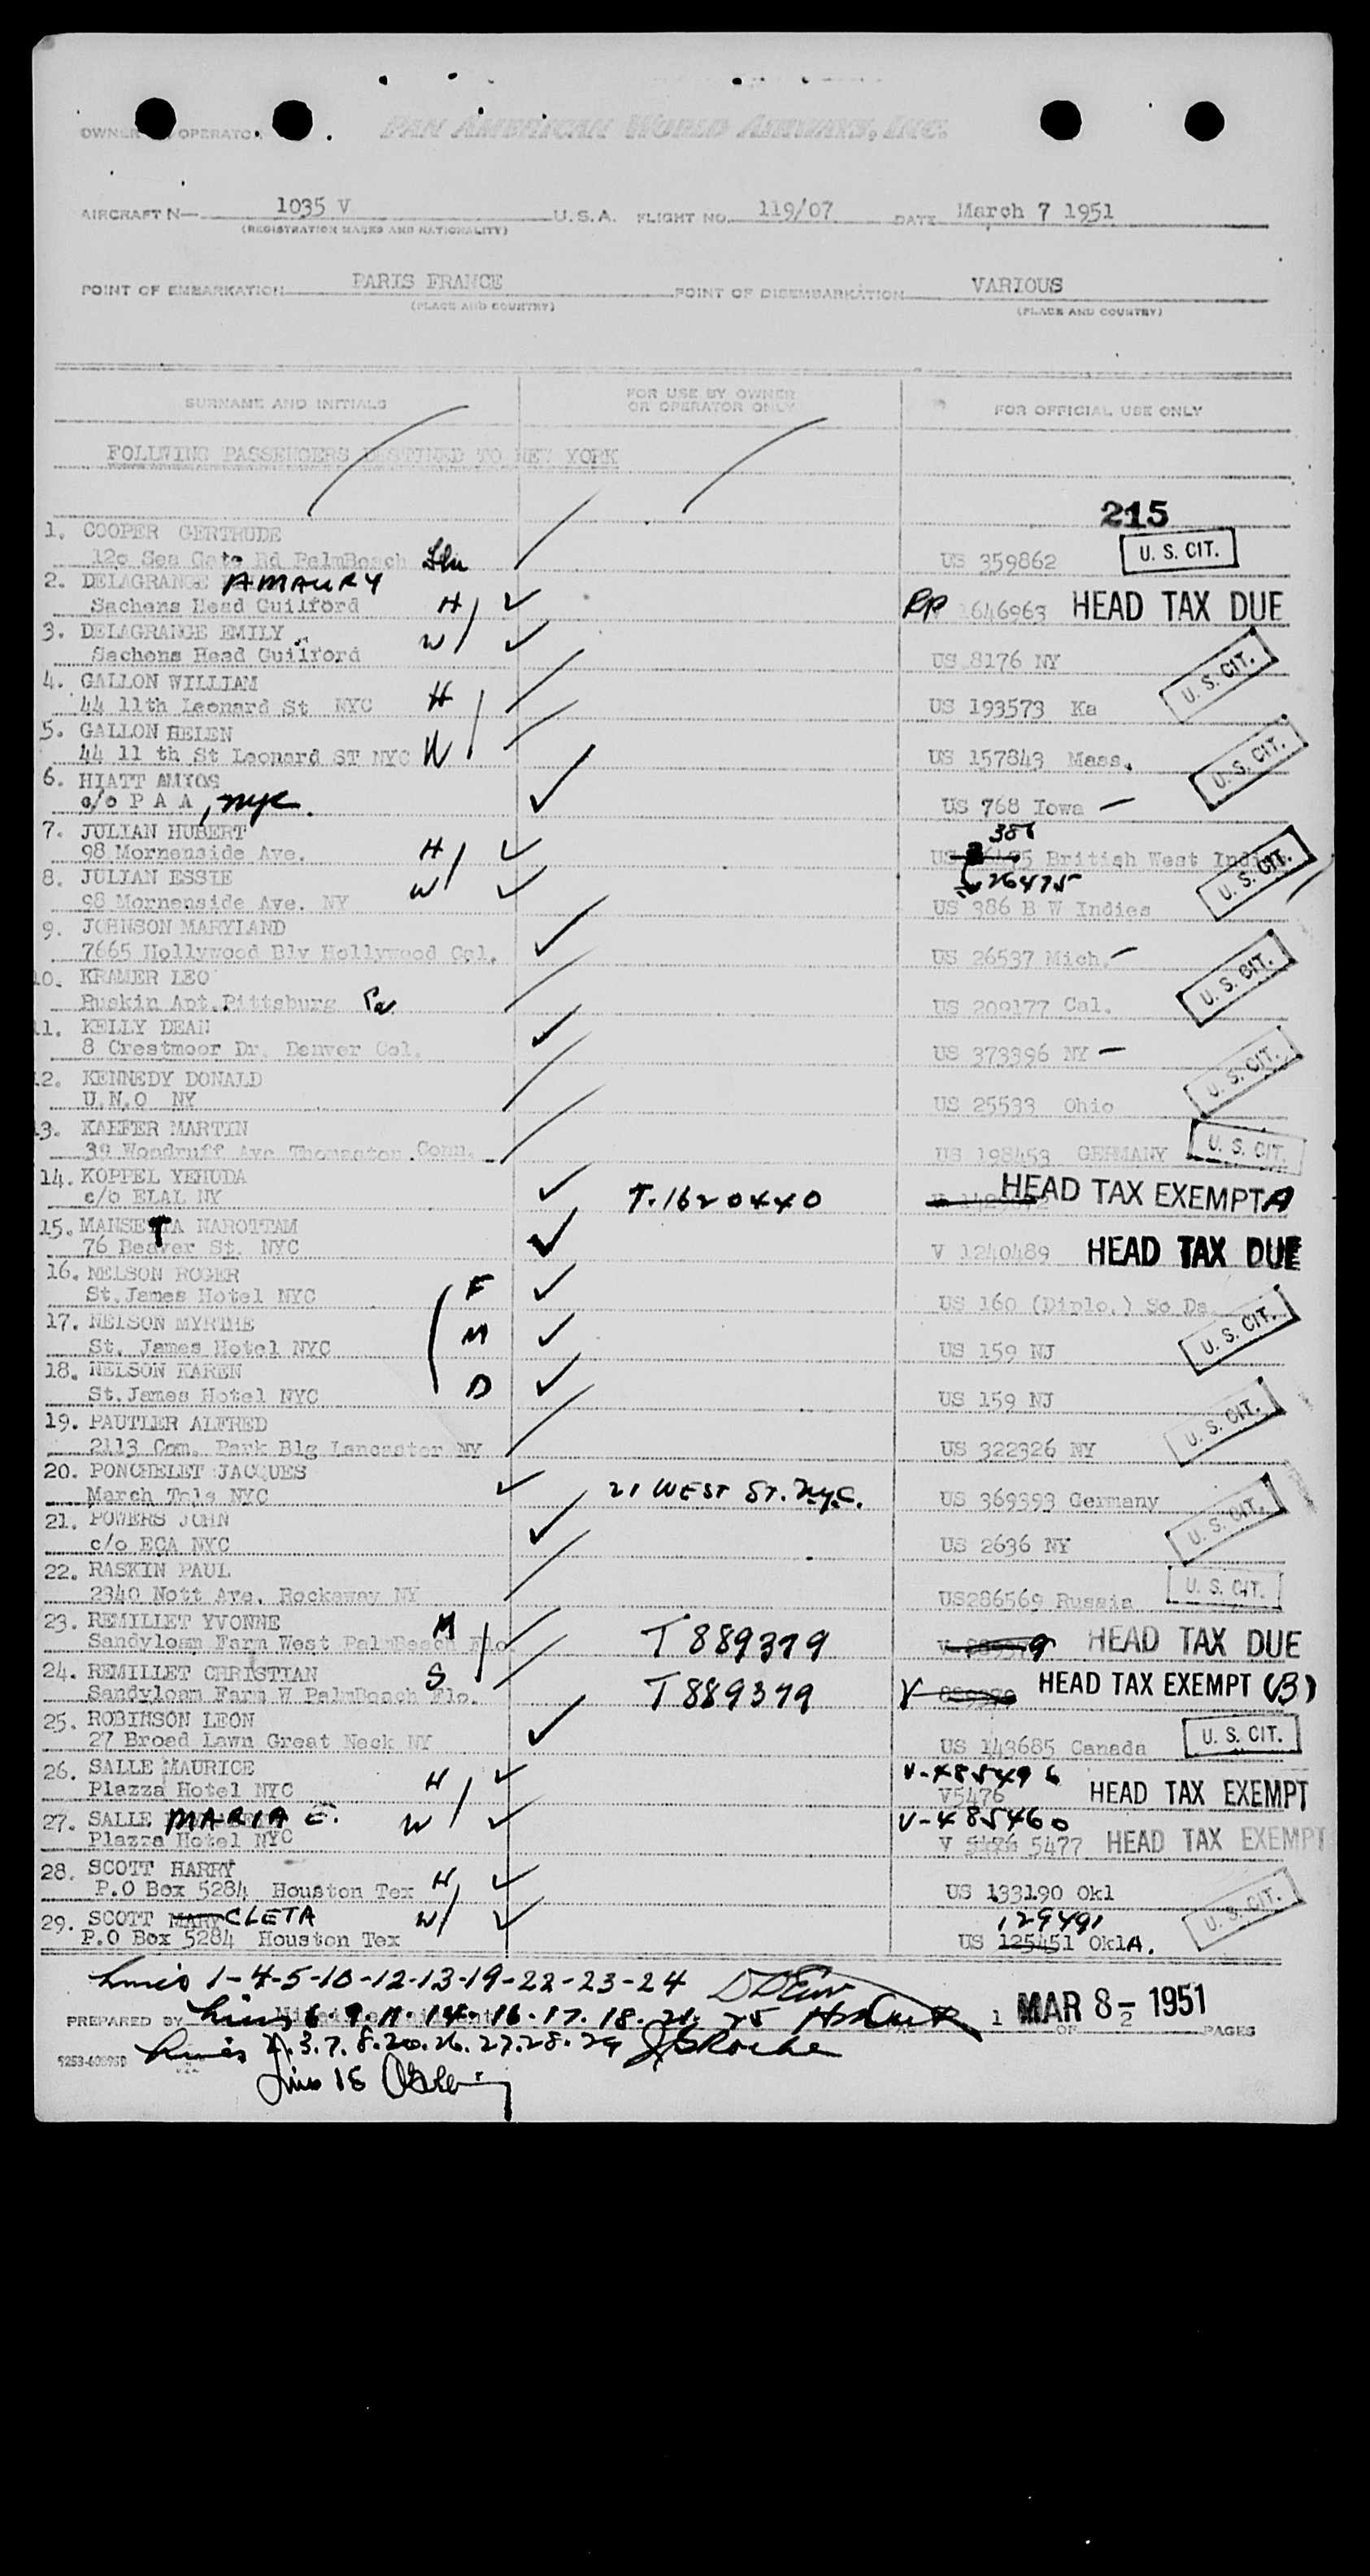 OWNER OPERATOR PAN AMERICAN WORLD AIRWAYS, INC.
AIRCRAFT N— 1035 V U.S.A. FLIGHT NO. 119/07 DATE March 7 1951
(REGISTRATION MARKS AND NATIONALITY)
POINT OF EMBARKATION PARIS FRANCE POINT OF DISEMBARKATION VARIOUS
(PLACE AND COUNTRY) (PLACE AND COUNTRY)
SURNAME AND INITIALS FOR USE BY OWNER OR OPERATOR ONLY FOR OFFICIAL USE ONLY
FOLLWING PASSENGERS DESTINED TO NEW YORK
215
1. COOPER GERTRUDE
120 Sea Gate Rd PalmBeach US 359862 U. S. CIT.
2. DELAGRANGE AMAURY
Sachens Head Guilford H RP 1646963 HEAD TAX DUE
3. DELAGRANGE EMILY
Sachens Head Guilford W US 8176 NY U. S. CIT.
4. GALLON WILLIAM
44 11th Leonard St NYC H US 193573 Ka
5. GALLON HELEN
44 11 th St Leonard ST NYC W US 157843 Mass. U. S. CIT.
6. HIATT AMIOS
c/o P A A, NYC. US 768 Iowa —
7. JULIAN HUBERT 386
98 Mornenside Ave. H US British West Indies U. S. CIT.
8. JULIAN ESSIE 26475
98 Mornenside Ave. NY W US 386 B W Indies
9. JOHNSON MARYLAND
7665 Hollywood Blv Hollywood Cal. US 26537 Mich. —
10. KRAMER LEO
Ruskin Apt. Pittsburg Pa. US 209177 Cal. U. S. CIT.
11. KELLY DEAN
8 Crestmoor Dr. Denver Col. US 373396 NY —
12. KENNEDY DONALD
U.N.O NY US 25533 Ohio U. S. CIT.
13. KAEFER MARTIN
39 Woodruff Ave Thomaston Conn. US 198453 GERMANY U. S. CIT.
14. KOPPEL YEHUDA
c/o ELAL NY T.1620440 HEAD TAX EXEMPT A
15. MANSETTA NAROTTAM
76 Beaver St. NYC V 1240489 HEAD TAX DUE
16. NELSON ROGER
St.James Hotel NYC F US 160 (Diplo.) So Da
17. NELSON MYRTHE
St. James Hotel NYC M US 159 NJ U. S. CIT.
18. NELSON KAREN
St.James Hotel NYC D US 159 NJ
19. PAUTLER ALFRED
2113 Com. Park Blg Lancaster NY US 322326 NY U. S. CIT.
20. PONCHELET JACQUES
March Tels NYC 21 WEST ST. NYC. US 369393 Germany
21. POWERS JOHN
c/o ECA NYC US 2636 NY U. S. CIT.
22. RASKIN PAUL
2340 Nott Ave. Rockaway NY US286569 Russia U. S. CIT.
23. REMILLET YVONNE
Sandyloam Farm West PalmBeach Flo. M T 889379 HEAD TAX DUE
24. REMILLET CHRISTIAN
Sandyloam Farm W PalmBeach Flo. S T 889379 V HEAD TAX EXEMPT (B)
25. ROBINSON LEON
27 Broad Lawn Great Neck NY US 143685 Canada U. S. CIT.
26. SALLE MAURICE V-485496
Plazza Hotel NYC H V5476 HEAD TAX EXEMPT
27. SALLE MARIA E. V-485460
Plazza Hotel NYC W V 5476 5477 HEAD TAX EXEMPT
28. SCOTT HARRY
P.O Box 5284 Houston Tex H US 133190 Okl
29. SCOTT MARY CLETA 129491 U. S. CIT.
P.O Box 5284 Houston Tex W US 125451 OklA.
Lines 1-4-5-10-12-13-19-22-23-24
PREPARED BY Lines 6. 9. 11. 14. 16. 17. 18. 21. 25 1 OF 2 PAGES MAR 8 - 1951
Lines 2.3.7.8.20.26.27.28.29
Line 15